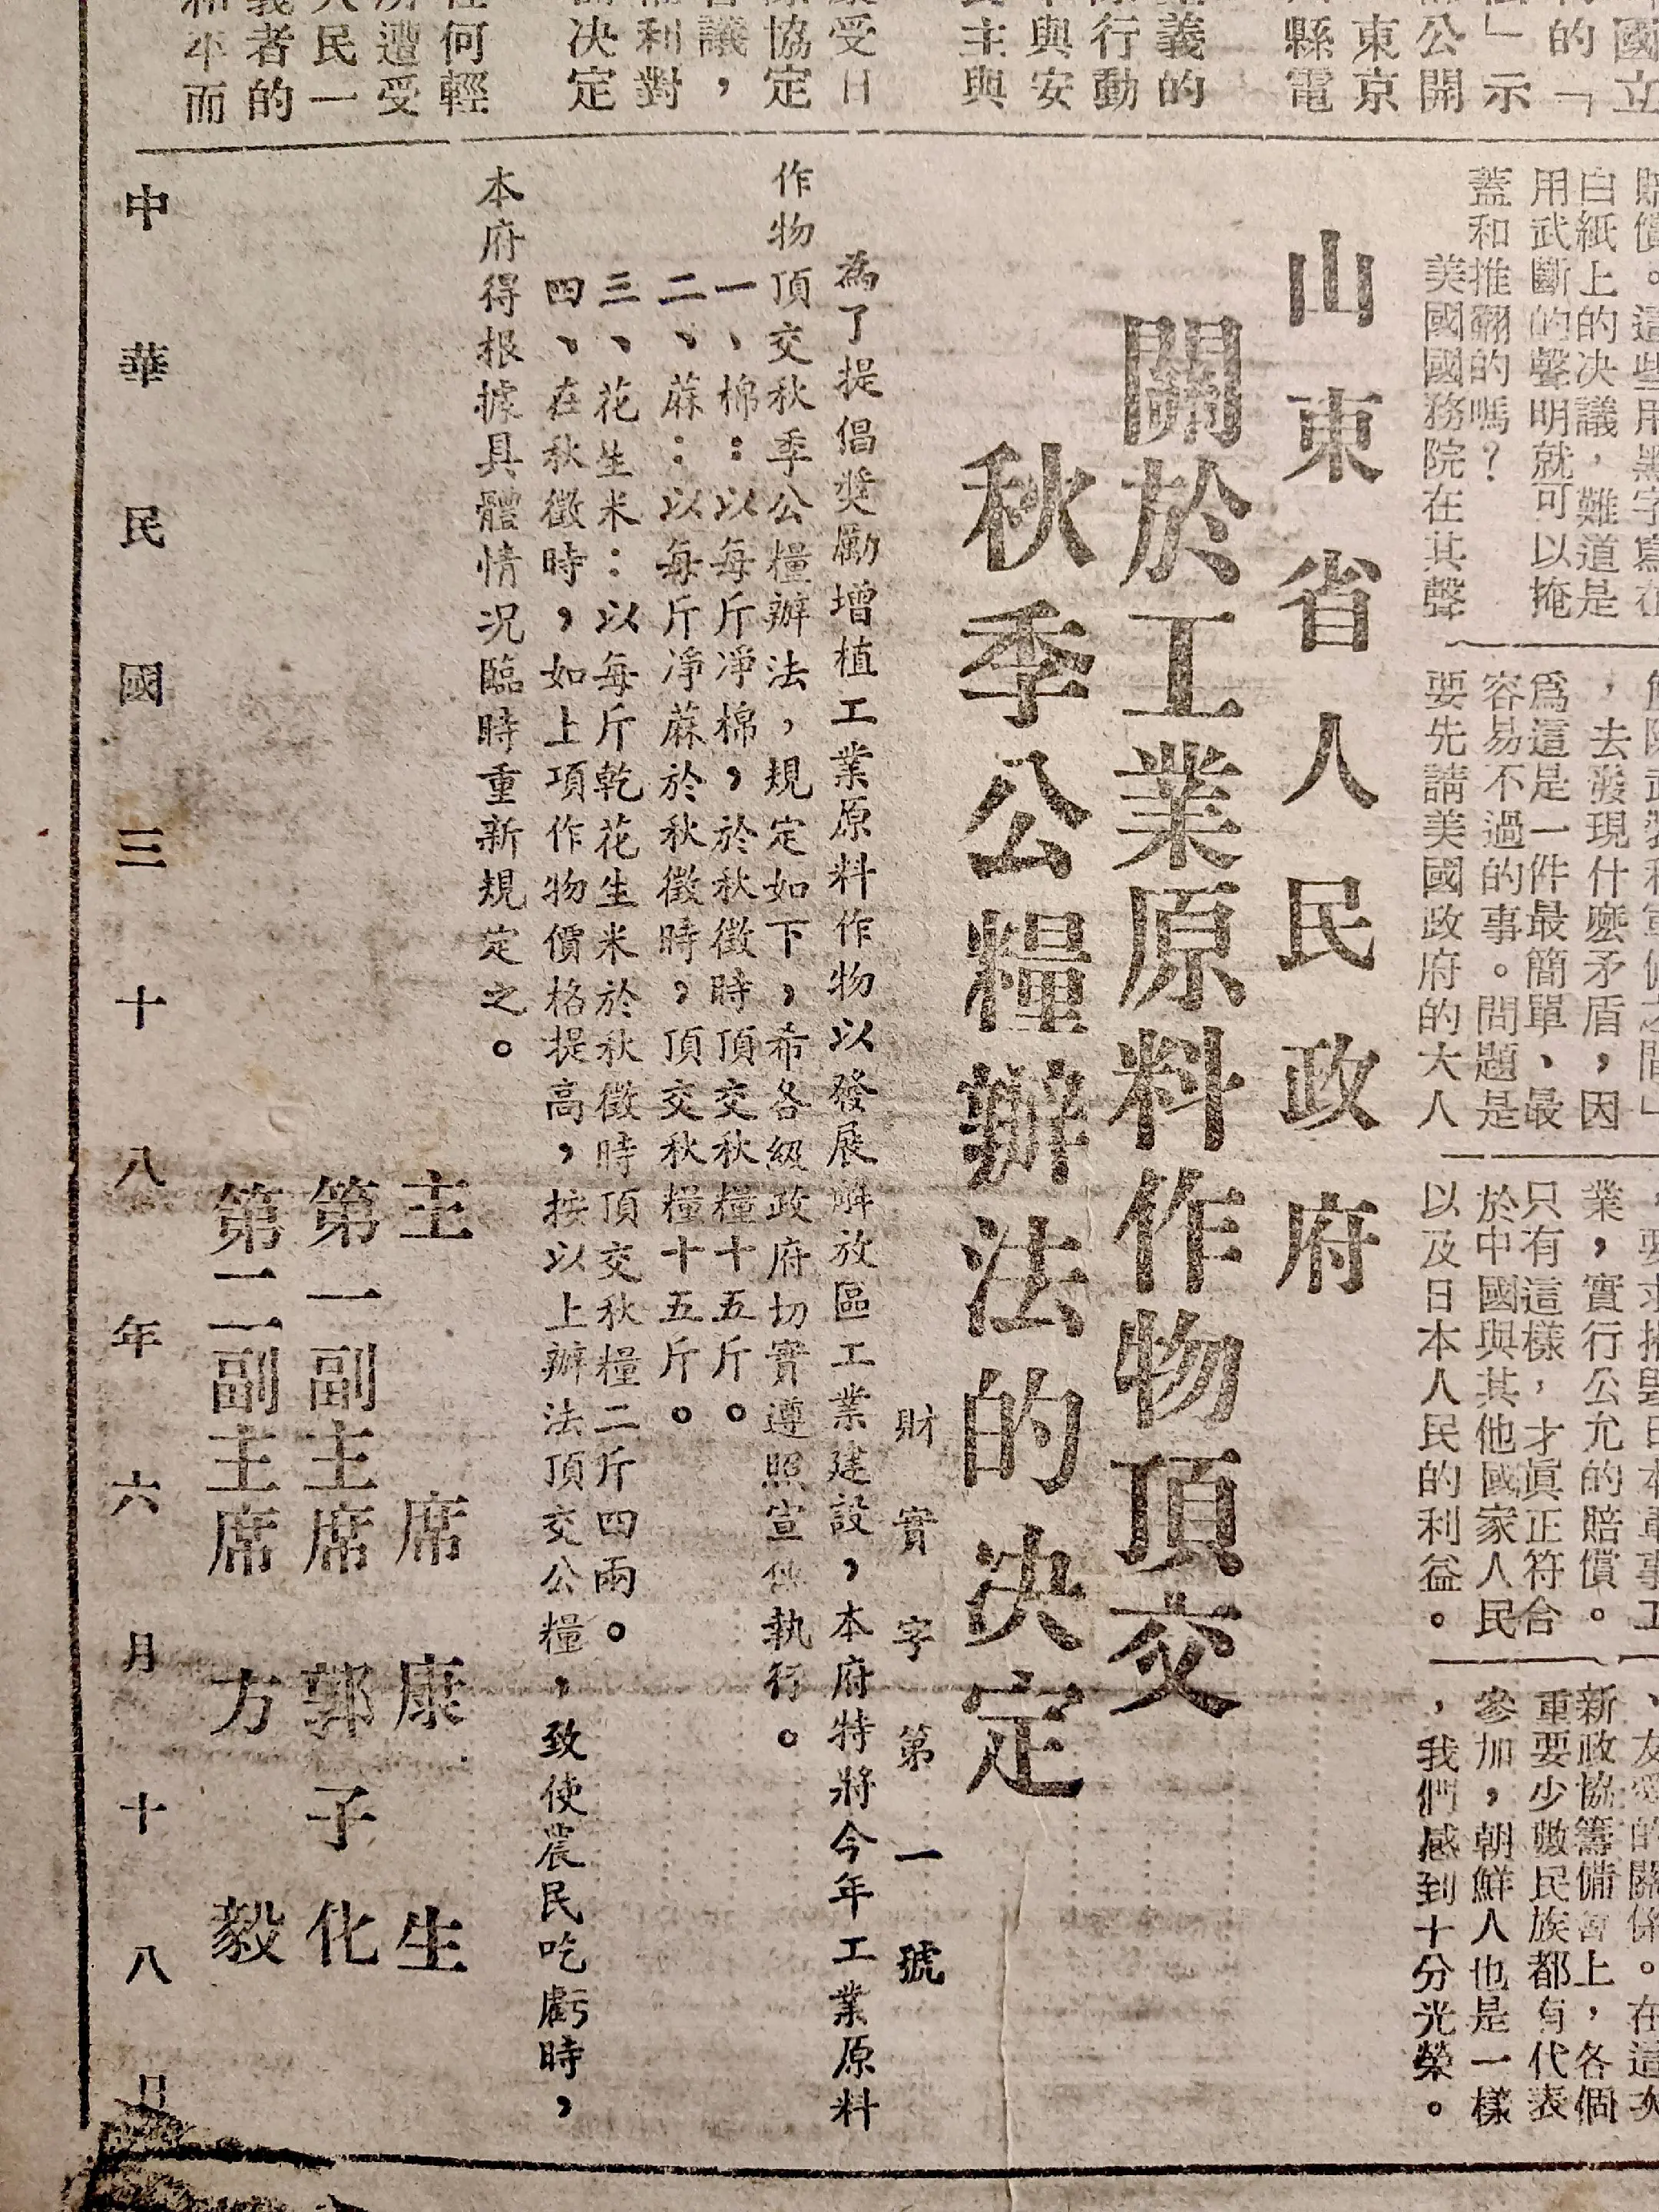 國立
的「
法」示
公開
東京
縣電
義的
行動
與安
主與
受日
協定
議，
利對
決定
任何輕
所遭受
人民一
義者的
和平而
白紙上的決議，難道是
用武斷的聲明就可以掩
蓋和推翻的嗎？
美國國務院在其聲
，去發現什麼矛盾，因
爲這是一件最簡單、最
容易不過的事。問題是
要先請美國政府的大人
業，實行公允的賠償。
只有這樣，才眞正符合
於中國與其他國家人民
以及日本人民的利益。
、友愛的關係。在這次
新政協籌備會上，各個
重要少數民族都有代表
參加，朝鮮人也是一樣
，我們感到十分光榮。
山東省人民政府
關於工業原料作物頂交
秋季公糧辦法的決定
財實字第一號
為了提倡獎勵增植工業原料作物以發展解放區工業建設，本府特將今年工業原料
作物頂交秋季公糧辦法，規定如下，希各級政府切實遵照宣傳執行。
一、棉：以每斤凈棉，於秋徵時頂交秋糧十五斤。
二、蔴：以每斤凈蔴於秋徵時，頂交秋糧十五斤。
三、花生米：以每斤乾花生米於秋徵時頂交秋糧二斤四兩。
四、在秋徵時，如上項作物價格提高，按以上辦法頂交公糧，致使農民吃虧時，
本府得根據具體情況臨時重新規定之。
主席 康生
第一副主席 郭子化
第二副主席 方毅
中華民國三十八年六月十八日